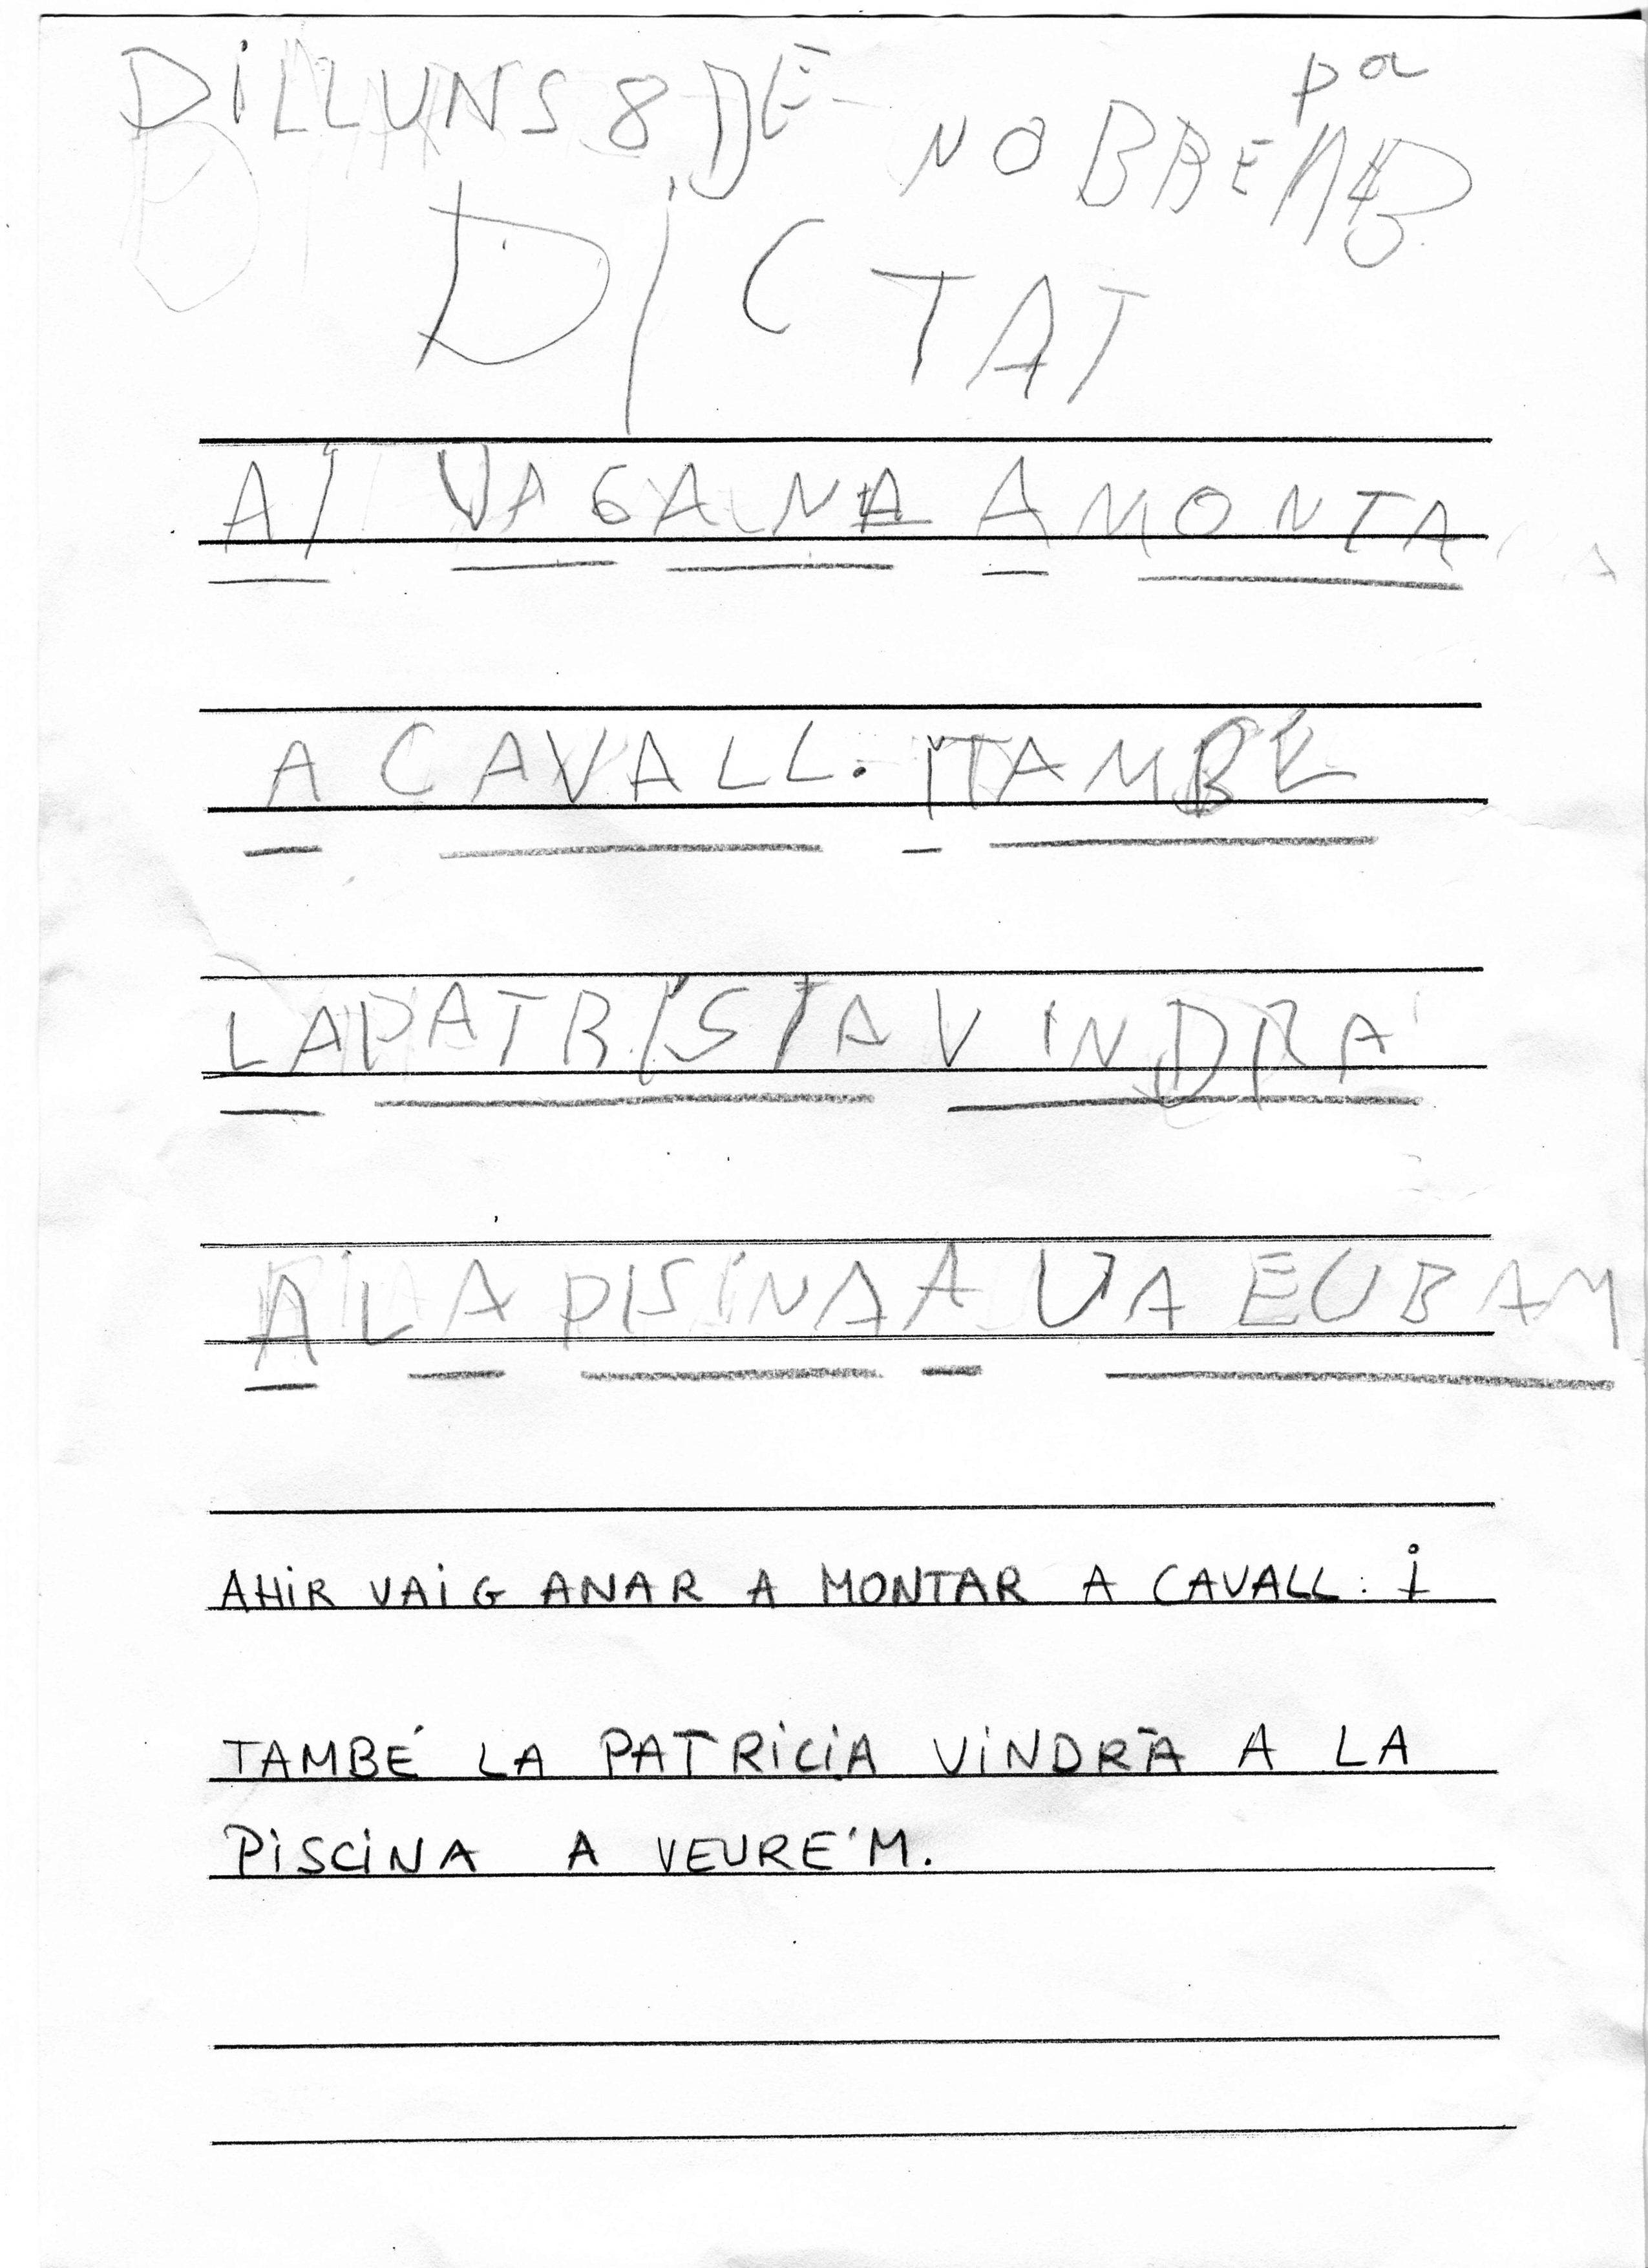 DILLUNS 8 DE NOBBRE
DICTAT
AI VAG ANA A MONTA
A CAVALL. I TAMBÉ
LA PATRISIA VINDRA
A LA PISINA A UAEUBAM
AHIR VAIG ANAR A MONTAR A CAVALL. I
TAMBÉ LA PATRICIA VINDRÀ A LA
PISCINA A VEURE'M.